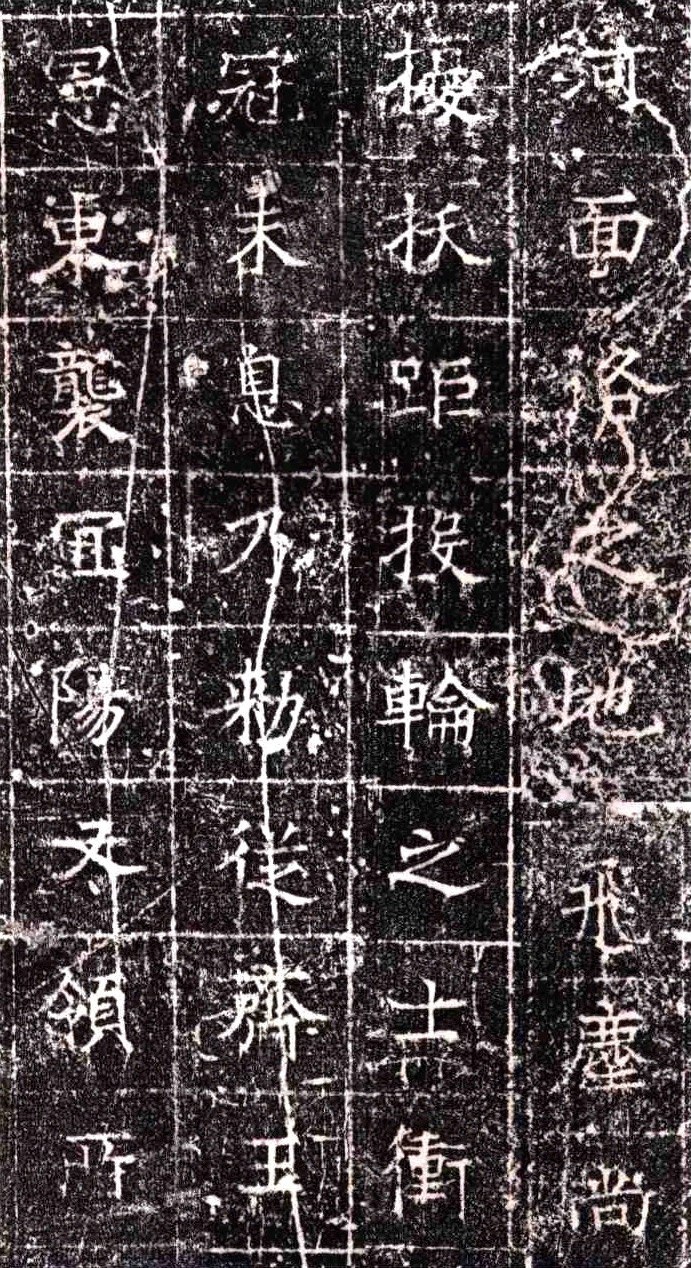 河面洛之地飛塵尚
擾扶距投輪之士衝
冠未息乃勑從齊王
憲東襲宜陽又領所